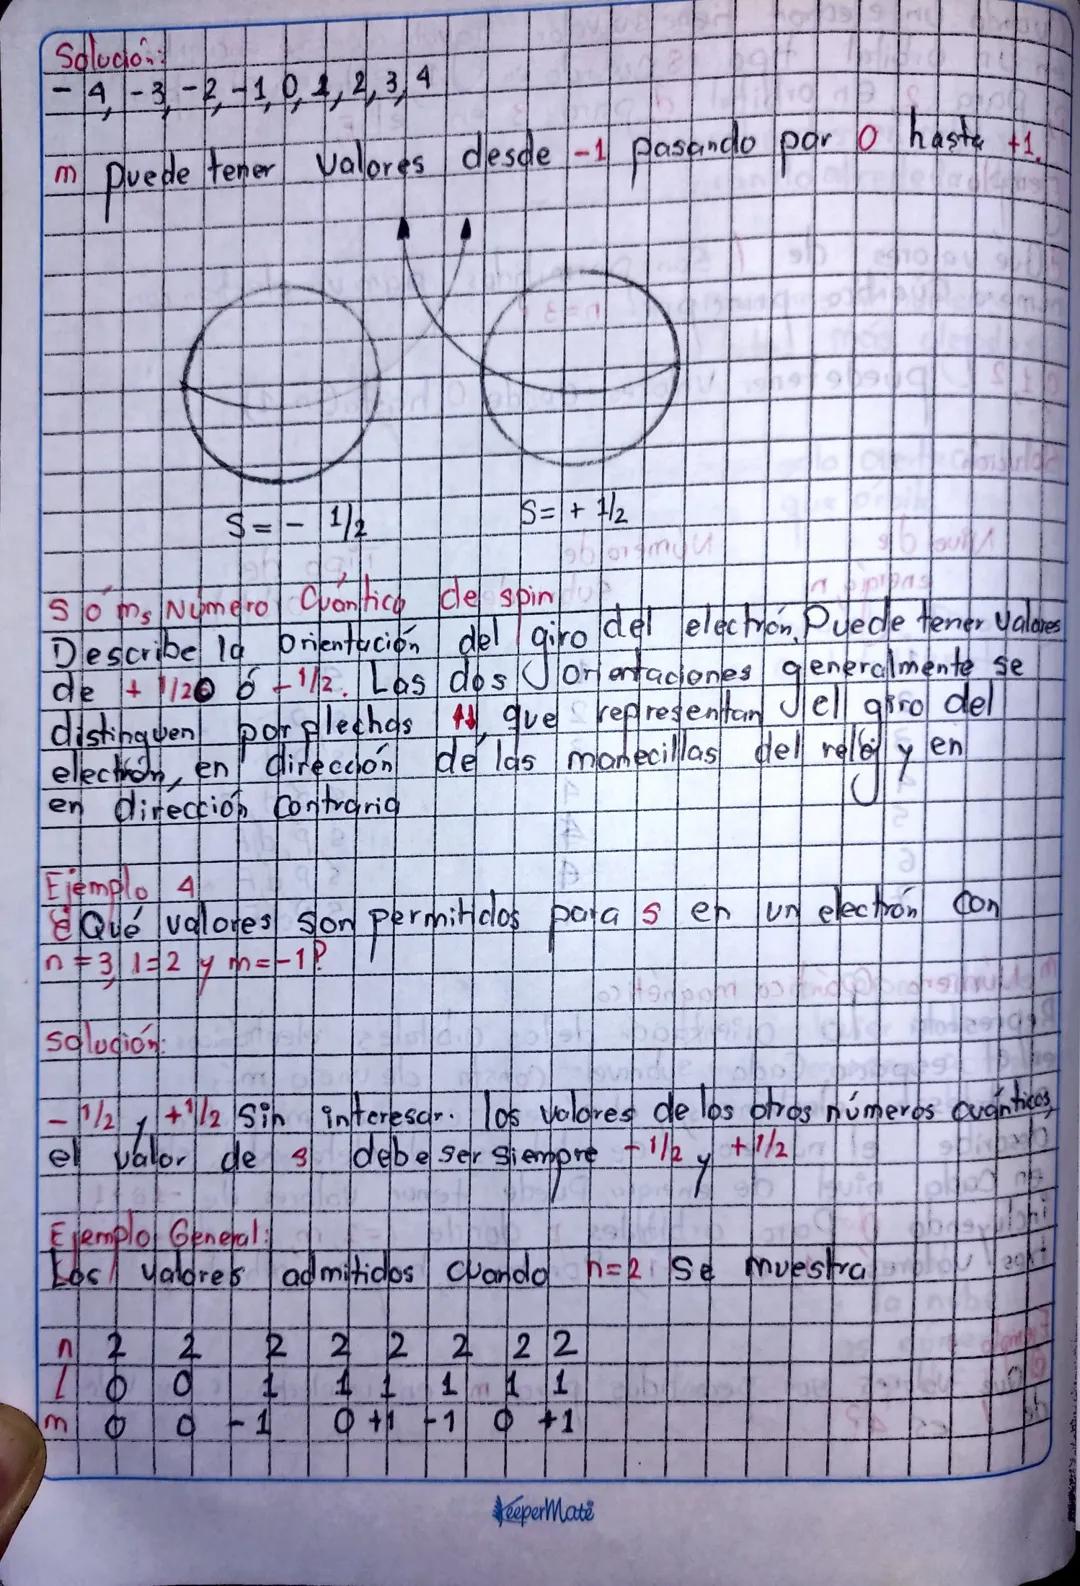 Solución:
- 4, -3, -2, -1, 0, 1, 2, 3, 4
m puede tener valores desde -1 pasando por 0 hasta +1.
S = - 1/2
S = + 1/2
S ó ms Número Cuántico de spin
Describe la orientación del giro del electrón. Puede tener valores
de + 1/2 ó - 1/2. Las dos orientaciones generalmente se
distinguen por flechas ↑↓, que representan el giro del
electrón, en dirección de las manecillas del reloj y en
en dirección contraria
Ejemplo 4
¿Qué valores son permitidos para s en un electrón con
n = 3, l = 2 y m = -1?
Solución:
- 1/2 y + 1/2 Sin interesar los valores de los otros números cuánticos,
el valor de s debe ser siempre - 1/2 y + 1/2
Ejemplo General:
Los valores admitidos cuando n = 2 se muestra
n 2 2 2 2 2 2 2 2
l 0 0 1 1 1 1 1 1
m 0 0 -1 0 +1 -1 0 +1
KeeperMate